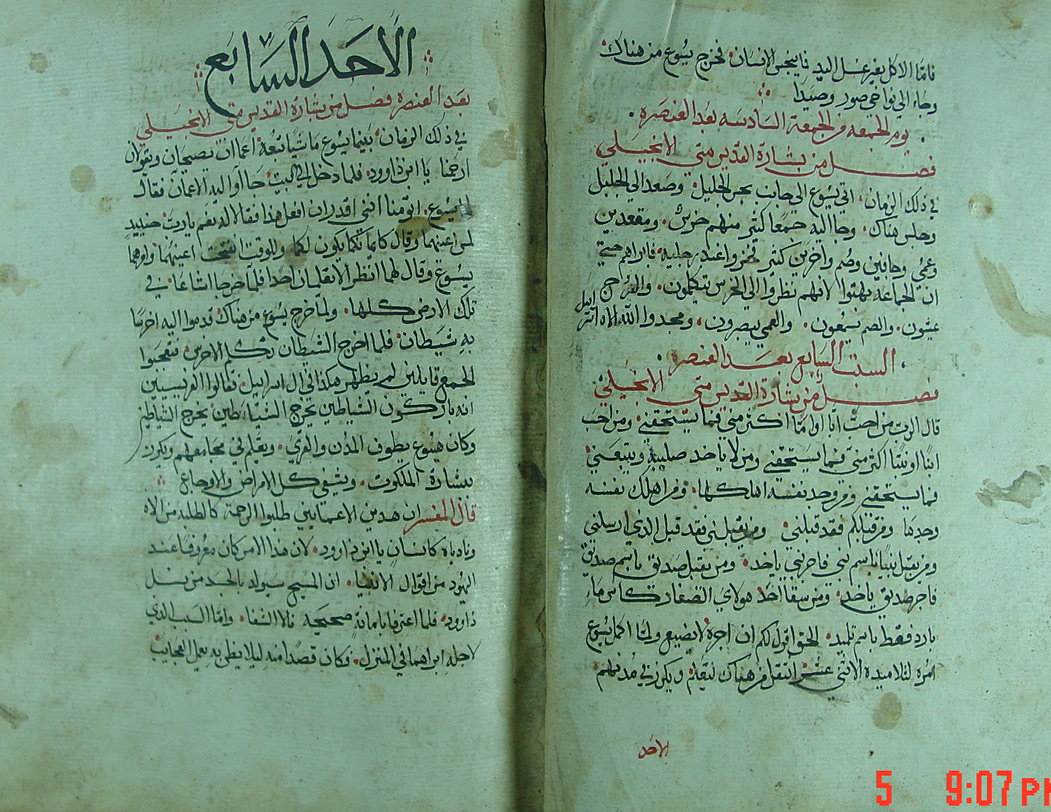 فامّا الاكل بغير غسل اليد فما ينجس الانسان فخرج يسوع من هناك
وجاء الى نواحي صور وصيدا
يوم الجمعه في الجمعة السادسه بعد العنصره
فصل من بشارة القديس متى الانجيلي
في ذلك الزمان اتى يسوع الى جانب بحر الجليل وصعد الى الجبل
وجلس هناك وجا اليه جمعا كثير منهم خرس ومقعدين
وعمي وجانين وصم واخرين كثير فخروا عند رجليه فابراهم حتى
ان الجماعه بهتوا لانهم نظروا الى الخرس يتكلمون والعرج
يمشون والصم يسمعون والعمي يبصرون ومجدوا الله الاه اسراييل
السبت السابع بعد العنصره
فصل من بشارة القديس متى الانجيلي
قال الرب من احبّ ابًا او امّا اكثر مني فما يستحقني ومن احب
ابنًا او بنتًا اكثر مني فما يستحقني ومن لا ياخد صليبه ويتبعني
فما يستحقني ومن وجد نفسه اهلكها ومن اهلك نفسه
وجدها ومن قبلكم فقد قبلني ومن يقبلني فقد قبل الدي ارسلني
ومن يقبل نبيًا باسم نبي فاجر نبي ياخد ومن يقبل صديق باسم صديق
فاجر صديق ياخد ومن سقا احد هولاي الصغار كاس ماء
بارد فقط باسم تلميد الحق اقول لكم ان اجره لا يضيع ولمّا اكمل يسوع
امره لتلاميده الاثني عشر انتقل من هناك ليعلم ويكرز في مدنهم
الاحد
الأحَد السَابِع
بعد العنصره فصل من بشارة القديس متى الانجيلي
في ذلك الزمان بينما يسوع ماشيا تبعه اعمان يصيحان ويقولان
ارحمنا يا ابن داوود فلما دخل الى البيت جااوا اليه الاعمان فقال
لهما يسوع اتومنا انني اقدر ان افعل هذا فقالا له نعم يارب حينيد
لمس اعينهما وقال كايمانكما يكون لكما وللوقت انفتحت اعينهما وانتهرهما
يسوع وقال لهما انظرا لا تعلمان احدا فلما خرجا اشاعا في
تلك الارض كلها ولما خرج يسوع من هناك قدموا اليه اخرسا
به شيطان فلما اخرج الشيطان تكلم الاخرس فتعجبوا
الجمع قايلين لم يظهر هكذا في ال اسراييل فقالوا الفريسيين
انه باركون الشياطين يخرج الشياطين
وكان يسوع يطوف المدن والقري ويعلم في مجامعهم ويكرز
ببشارة الملكوت ويشفي كل الامراض والاوجاع
قال المفسر ان هدين الاعمايين طلبوا الرحمة كالطلبه من الاه
ونادياه كانسان يا ابن داوود لان هذا الامر كان معروفا عند
اليهود من اقوال الانبيا ان المسيح سيولد بالجسد من نسل
داوود فلما اعترفا بامانة صحيحة نالا الشفا وامّا السبب الدي
لاجله ابراهما في المنزل وكان قصدا منه ليلا يظن به يعمل العجايب
5 9:07 PM